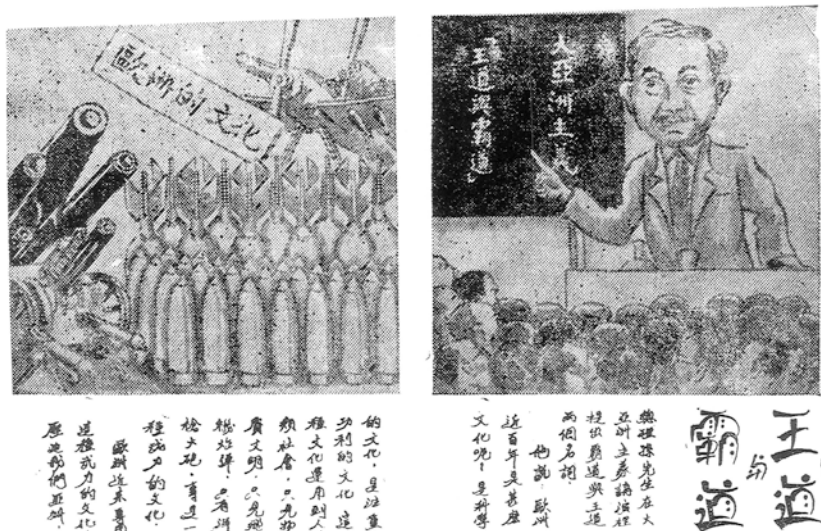 王道
与
霸道
大亞洲主義
「王道與霸道」
總理孫先生在大
亞洲主義講演裡
提出霸道與王道
兩個名詞．
他說：歐洲
近百年是甚麼
文化呢？是科學
的文化，是注重
功利的文化，這
種文化運用到人
類社會，只見物
質文明，只見飛
機炸彈，只有洋
槍大砲，專是一
種武力的文化．
歐洲近來專用
這種武力的文化
壓迫我們亞洲．
歐洲的文化